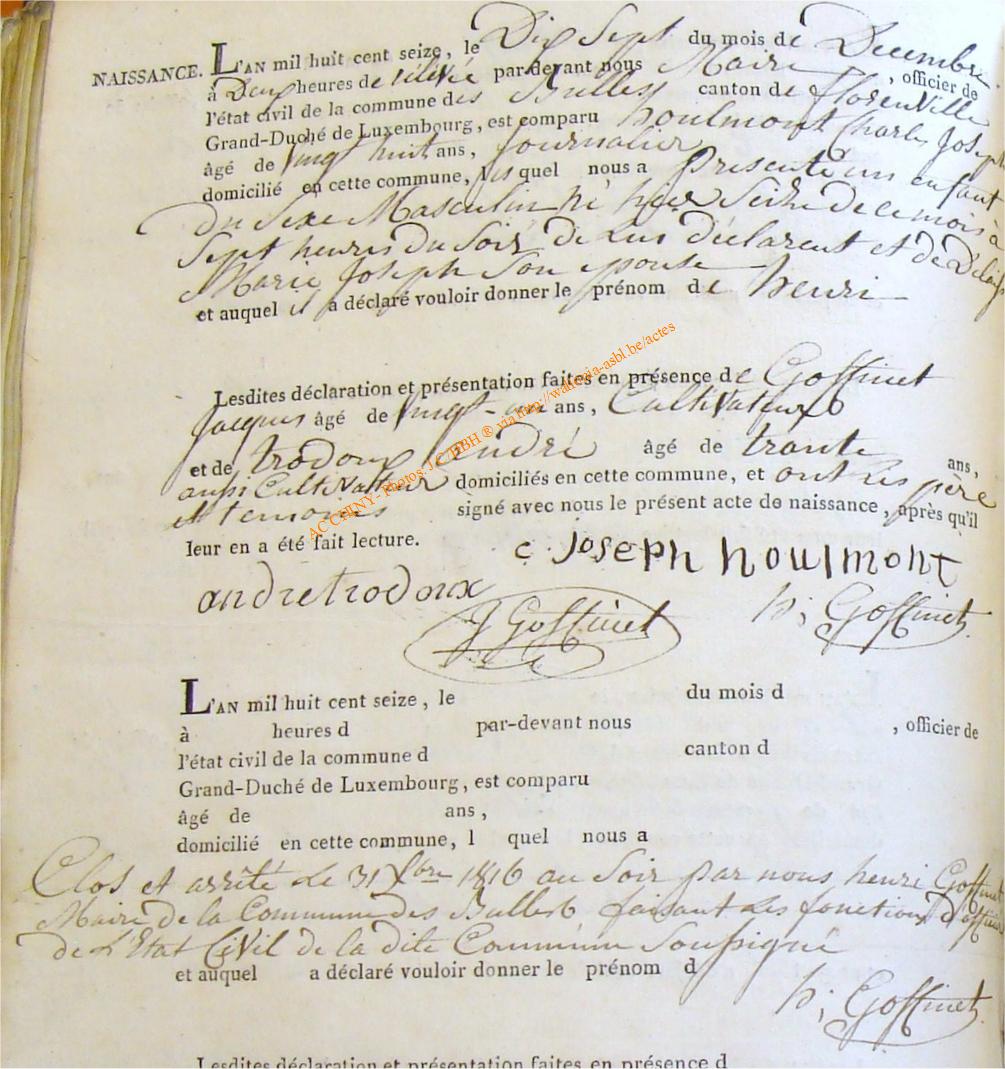 NAISSANCE. L'AN mil huit cent seize, le Dix Sept du mois de Decembre
à Deux heures de rélévée par-devant nous Maire, officier de
l'état civil de la commune des Bulles canton de florenville
Grand-Duché de Luxembourg, est comparu houlmont Charles Joseph
âgé de vingt huit ans, Journalier
domicilié en cette commune, les quel nous a presenté un enfant
Du Sexe Masculin né hier Seize de ce mois a
Sept heures du Soir de Lui déclarent et de
Marie Joseph Son epouse
et auquel il a déclaré vouloir donner le prénom de henri
Lesdites déclaration et présentation faites en présence de Goffinet
Jacques âgé de vingt-un ans, Cultivateur
et de trodoux André âgé de trante ans,
aussi Cultivateur domiciliés en cette commune, et ont les père
et temoins signé avec nous le présent acte de naissance, après qu'il
leur en a été fait lecture.
c. joseph houlmont
andre trodoux
J Goffinet
h; Goffinet
L'AN mil huit cent seize, le du mois d
à heures d par-devant nous , officier de
l'état civil de la commune d canton d
Grand-Duché de Luxembourg, est comparu
âgé de ans,
domicilié en cette commune, l quel nous a
Clos et arrêté Le 31 Xbre 1816 au Soir par nous henri Goffinet
Maire de la Commune des Bulles faisant Les fonctions d'officier
de L'Etat Civil de la dite Commune Soussigné
et auquel a déclaré vouloir donner le prénom d
h; Goffinet
Lesdites déclaration et présentation faites en présence d
AC CHINY - Photos: J.C. HBH ® via http://wallonia-asbl.be/actes